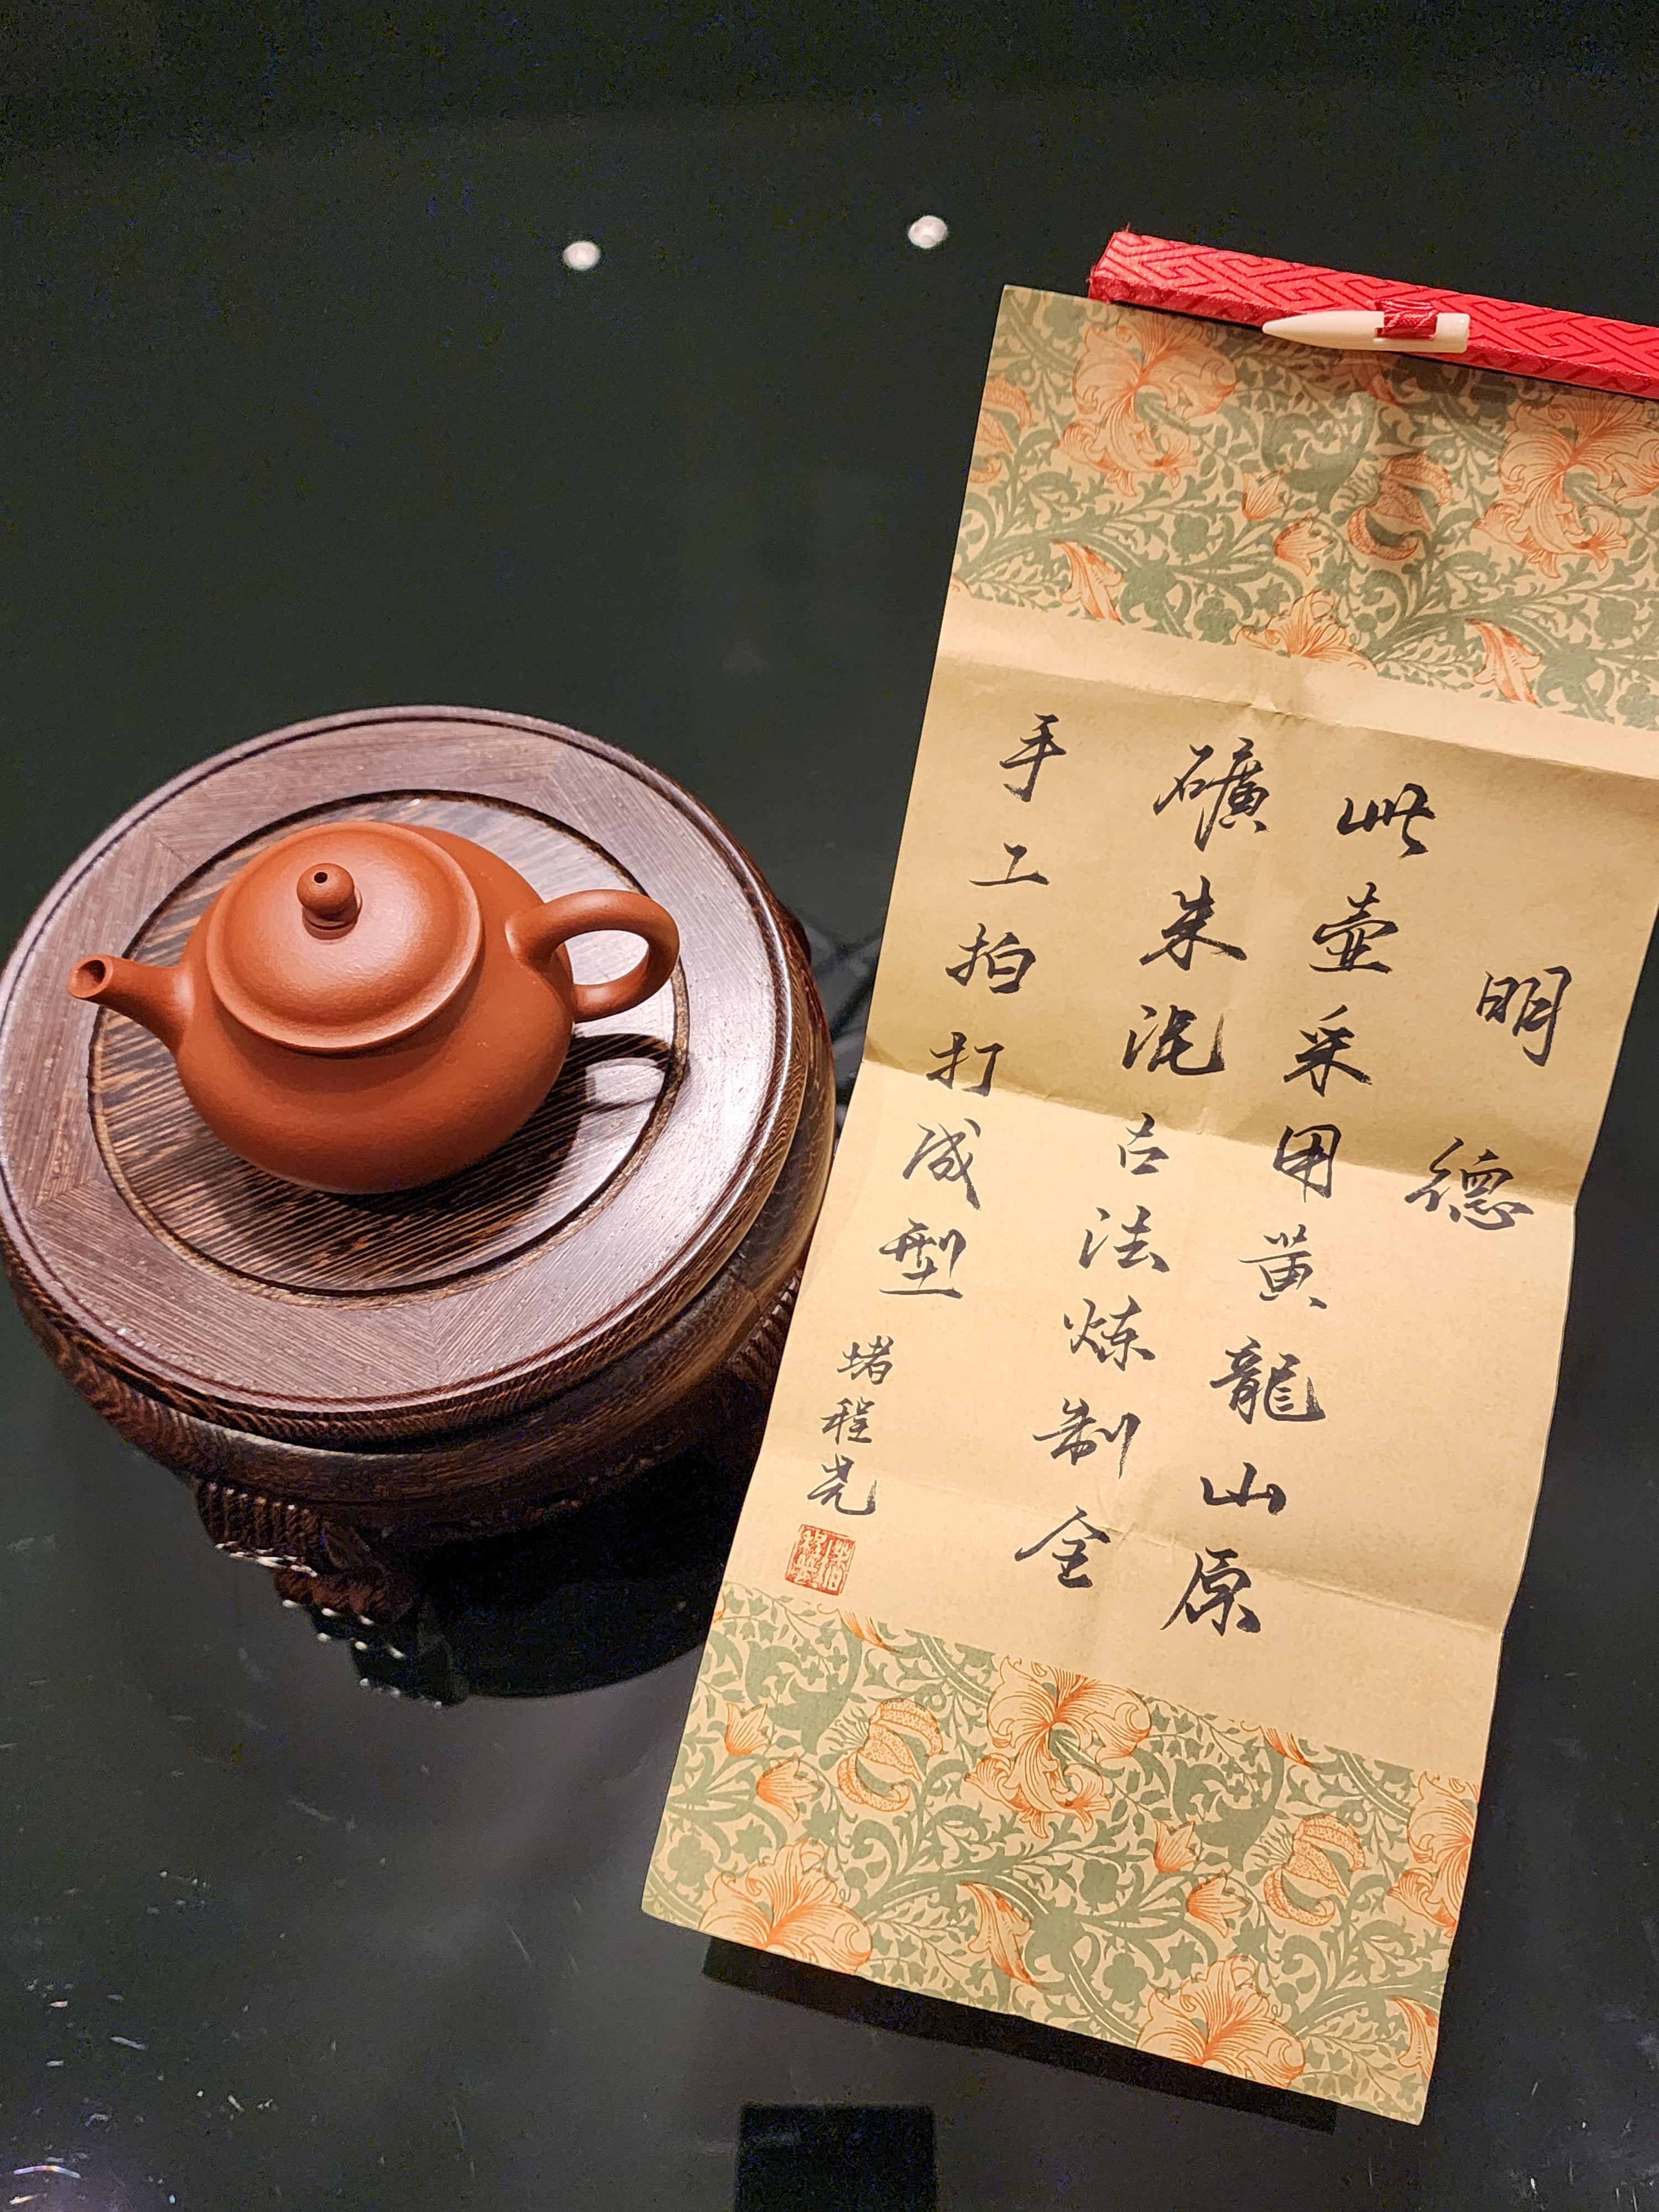 明德
此壺采用黄龍山原
礦朱泥古法炼制全
手工拍打成型
堵程尧